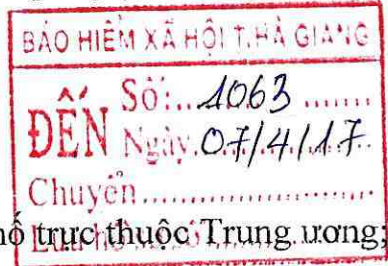 BẢO HIỂM XÃ HỘI T.HÀ GIANG
ĐẾN
Số:...1063.......
Ngày.07/4/17
Chuyển........................
hố trực thuộc Trung ương;